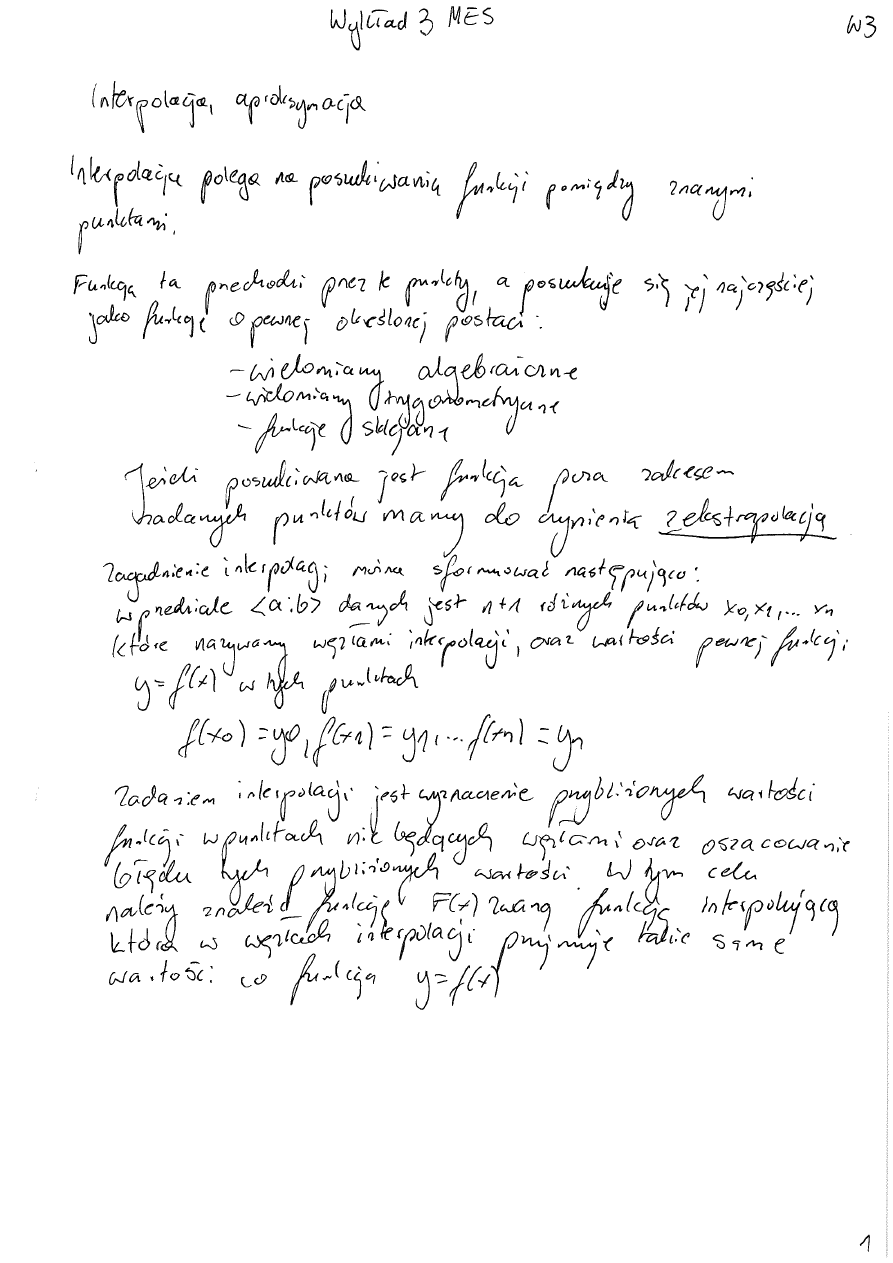 Wykład 3 MES
W3
Interpolacja, aproksymacja
Interpolacja polega na poszukiwaniu funkcji pomiędzy znanymi
punktami.
Funkcja ta przechodzi przez te punkty, a poszukuje się jej najczęściej
jako funkcję o pewnej określonej postaci:
- wielomiany algebraiczne
- wielomiany trygonometryczne
- funkcje sklejane
Jeżeli poszukiwana jest funkcja poza zakresem
zadanych punktów mamy do czynienia z ekstrapolacją
Zagadnienie interpolacji można sformułować następująco:
w przedziale <a;b> danych jest n+1 różnych punktów x0, x1,... xn
które nazywamy węzłami interpolacji, oraz wartości pewnej funkcji
y=f(x) w tych punktach
f(x0)=y0, f(x1)=y1,... f(xn)=yn
Zadaniem interpolacji jest wyznaczenie przybliżonych wartości
funkcji w punktach nie będących węzłami oraz oszacowanie
błędu tych przybliżonych wartości. W tym celu
należy znaleźć funkcję F(x) zwaną funkcją interpolującą
która w węzłach interpolacji przyjmuje takie same
wartości co funkcja y=f(x)
1